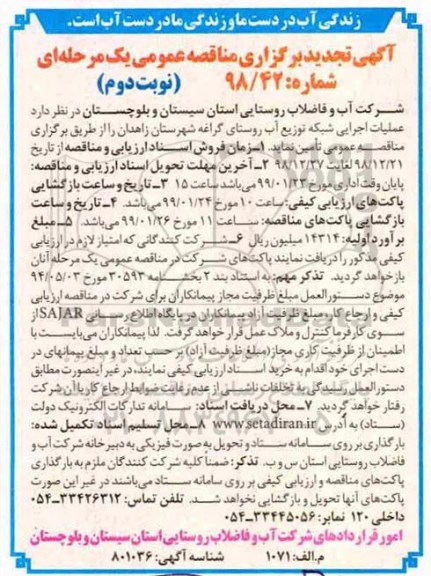 زندگی آب در دست ما و زندگی ما در دست آب است.
آگهی تجدید برگزاری مناقصه عمومی یک مرحله‌ای
شماره: ۹۸/۴۲ (نوبت دوم)
شرکت آب و فاضلاب روستایی استان سیستان و بلوچستان در نظر دارد
عملیات اجرایی شبکه توزیع آب روستای گراغه شهرستان زاهدان را از طریق برگزاری
مناقصه عمومی تأمین نماید. ۱ـ زمان فروش اسناد ارزیابی و مناقصه از تاریخ
۹۸/۱۲/۲۱ لغایت ۹۸/۱۲/۲۷ ۲ـ آخرین مهلت تحویل اسناد ارزیابی و مناقصه:
پایان وقت اداری مورخ ۹۹/۰۱/۲۳ می‌باشد ساعت ۱۵ ۳ـ تاریخ و ساعت بازگشایی
پاکت‌های ارزیابی کیفی: ساعت ۱۰ مورخ ۹۹/۰۱/۲۴ می‌باشد. ۴ـ تاریخ و ساعت
بازگشایی پاکت‌های مناقصه: ساعت ۱۱ مورخ ۹۹/۰۱/۲۶ می‌باشد. ۵ـ مبلغ
برآورد اولیه: ۱۴۳۱۴ میلیون ریال ۶ـ شرکت کنندگانی که امتیاز لازم در ارزیابی
کیفی مذکور را دریافت نمایند پاکت‌های شرکت در مناقصه عمومی یک مرحله آنان
باز خواهد گردید. تذکر مهم: به استناد بند ۲ بخشنامه ۳۰۵۹۳ مورخ ۹۴/۰۵/۰۳
موضوع دستورالعمل مبلغ ظرفیت مجاز پیمانکاران برای شرکت در مناقصه ارزیابی
کیفی و ارجاع کار، مبلغ ظرفیت آزاد پیمانکاران در پایگاه اطلاع رسانی SAJAR از
سوی کارفرما کنترل و ملاک عمل قرار خواهد گرفت. لذا پیمانکاران می‌بایست با
اطمینان از ظرفیت کاری مجاز (مبلغ ظرفیت آزاد) بر حسب تعداد و مبلغ پیمانهای در
دست اجرای خود اقدام به خرید اسناد ارزیابی کیفی نمایند، در غیر اینصورت مطابق
دستورالعمل رسیدگی به تخلفات ناشی از عدم رعایت ضوابط ارجاع کار با آن شرکت
رفتار خواهد گردید. ۷ـ محل دریافت اسناد: سامانه تدارکات الکترونیک دولت
(ستاد) به آدرس www.setadiran.ir ۸ـ محل تسلیم اسناد تکمیل شده:
بارگذاری بر روی سامانه ستاد و تحویل به صورت فیزیکی به دبیرخانه شرکت آب و
فاضلاب روستایی استان س و ب. تذکر: ضمناً کلیه شرکت کنندگان ملزم به بارگذاری
پاکت‌های مناقصه و ارزیابی کیفی بر روی سامانه ستاد می‌باشند در غیر این صورت
پاکت‌های آنها تحویل و بازگشایی نخواهد شد. تلفن تماس: ۳۳۴۲۶۳۱۲-۰۵۴
داخلی ۱۲۰ نمابر: ۳۳۴۴۵۰۵۶-۰۵۴
امور قراردادهای شرکت آب و فاضلاب روستایی استان سیستان و بلوچستان
م.الف: ۱۰۷۱ شناسه آگهی: ۸۰۱۰۳۶